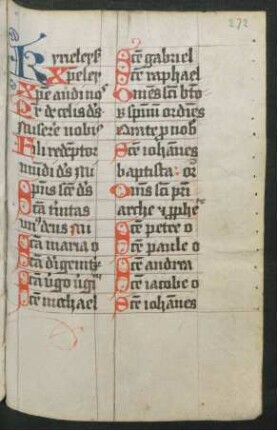 272
Kyrieleyson
Xpeleyson
Xpe audi nos
Pr de celis ds
Miserere nobis
Fili redeptor
mudi ds mi
Spus sce ds
Sca tnitas
un deus mi
Sca maria o
Sca di genitx
Sca vgo vgi
Sce michael
Sce gabriel
Sce raphael
Oms sci bto
spuum ordies
orate p nob
Sce iohanes
baptista or
Oms sci pri
arche et pphe
Sce petre o
Sce paule o
Sce andrea
Sce iacobe o
Sce iohanes